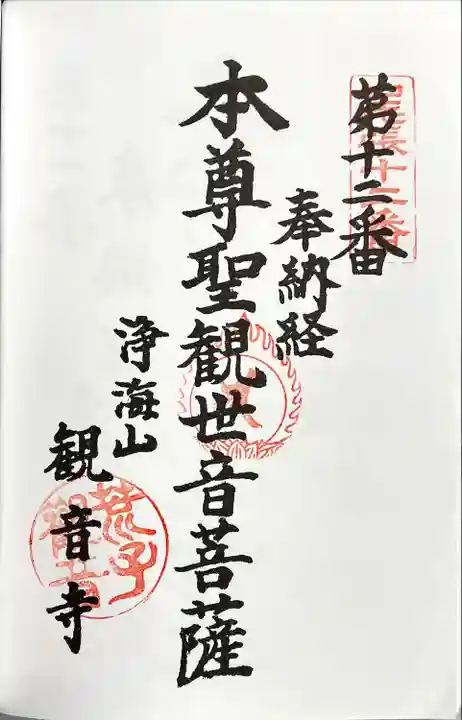 第十二番
奉納経
本尊聖観世音菩薩
浄海山
観音寺
荒子
観音